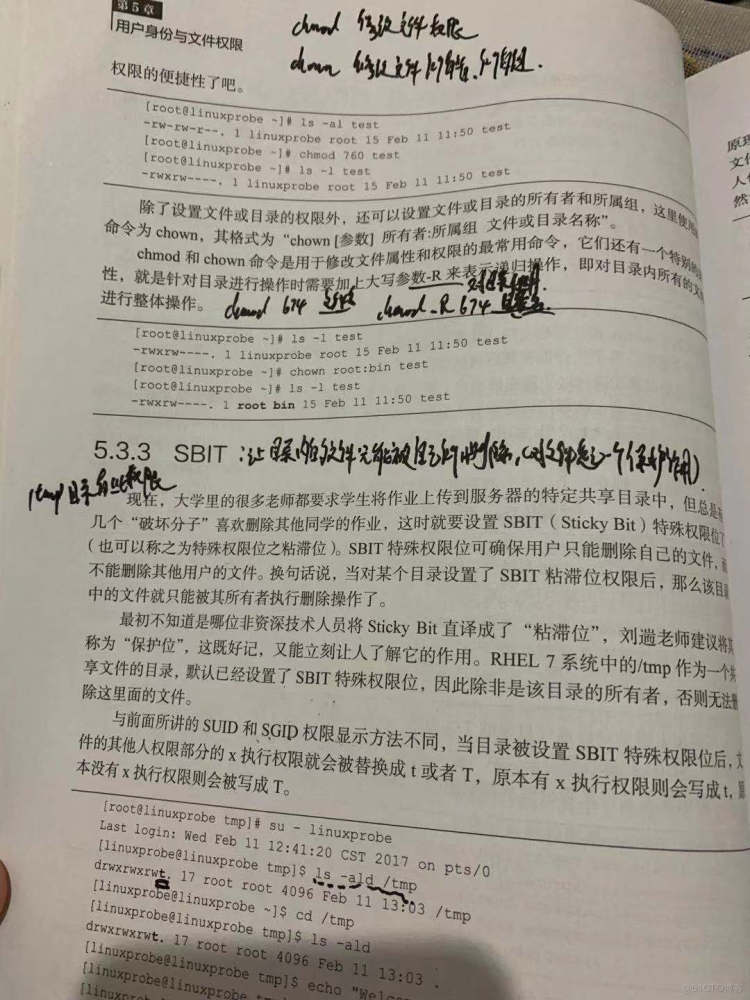 第5章
用户身份与文件权限
chmod 修改文件权限
chown 修改文件所有者、所有组.
权限的便捷性了吧。
[root@linuxprobe ~]# ls -al test
-rw-rw-r--. 1 linuxprobe root 15 Feb 11 11:50 test
[root@linuxprobe ~]# chmod 760 test
[root@linuxprobe ~]# ls -l test
-rwxrw----. 1 linuxprobe root 15 Feb 11 11:50 test
除了设置文件或目录的权限外，还可以设置文件或目录的所有者和所属组，这里使用
命令为 chown，其格式为“chown [参数] 所有者:所属组 文件或目录名称”。
chmod 和 chown 命令是用于修改文件属性和权限的最常用命令，它们还有一个特别的
性，就是针对目录进行操作时需要加上大写参数-R 来表示递归操作，即对目录内所有的文
进行整体操作。 chmod 674 chmod -R 674 目录名
[root@linuxprobe ~]# ls -l test
-rwxrw----. 1 linuxprobe root 15 Feb 11 11:50 test
[root@linuxprobe ~]# chown root:bin test
[root@linuxprobe ~]# ls -l test
-rwxrw----. 1 root bin 15 Feb 11 11:50 test
5.3.3 SBIT ：让目录内的文件只能被自己所删除，(对文件起一个保护作用)
/tmp 目录有此权限
现在，大学里的很多老师都要求学生将作业上传到服务器的特定共享目录中，但总是有
几个“破坏分子”喜欢删除其他同学的作业，这时就要设置 SBIT（Sticky Bit）特殊权限位了
（也可以称之为特殊权限位之粘滞位）。SBIT 特殊权限位可确保用户只能删除自己的文件，而
不能删除其他用户的文件。换句话说，当对某个目录设置了 SBIT 粘滞位权限后，那么该目录
中的文件就只能被其所有者执行删除操作了。
最初不知道是哪位非资深技术人员将 Sticky Bit 直译成了“粘滞位”，刘遄老师建议将其
称为“保护位”，这既好记，又能立刻让人了解它的作用。RHEL 7 系统中的/tmp 作为一个共
享文件的目录，默认已经设置了 SBIT 特殊权限位，因此除非是该目录的所有者，否则无法删
除这里面的文件。
与前面所讲的 SUID 和 SGID 权限显示方法不同，当目录被设置 SBIT 特殊权限位后，文
件的其他人权限部分的 x 执行权限就会被替换成 t 或者 T，原本有 x 执行权限则会写成 t，原
本没有 x 执行权限则会被写成 T。
[root@linuxprobe tmp]# su - linuxprobe
Last login: Wed Feb 11 12:41:20 CST 2017 on pts/0
[linuxprobe@linuxprobe tmp]$ ls -ald /tmp
drwxrwxrwt. 17 root root 4096 Feb 11 13:03 /tmp
[linuxprobe@linuxprobe ~]$ cd /tmp
[linuxprobe@linuxprobe tmp]$ ls -ald
drwxrwxrwt. 17 root root 4096 Feb 11 13:03 .
[linuxprobe@linuxprobe tmp]$ echo "Welco
[linuxprobe@linuxprobe tmp]
原理
文件
人
然